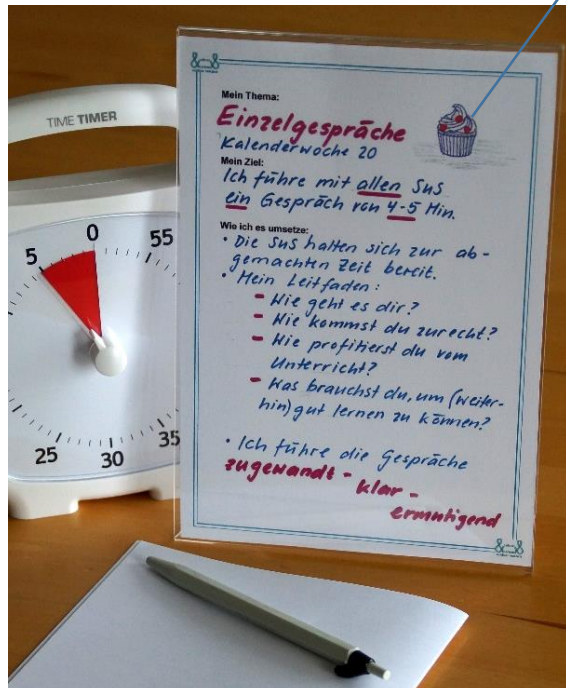 TIME TIMER
0
5
55
25
30
35
Mein Thema:
Einzelgespräche
Kalenderwoche 20
Mein Ziel:
Ich führe mit allen SuS
ein Gespräch von 4-5 Min.
Wie ich es umsetze:
• Die SuS halten sich zur ab-
gemachten Zeit bereit.
• Mein Leitfaden:
- Wie geht es dir?
- Wie kommst du zurecht?
- Wie profitierst du vom
Unterricht?
- Was brauchst du, um (weiter-
hin) gut lernen zu können?
• Ich führe die Gespräche
zugewandt -
klar -
ermutigend